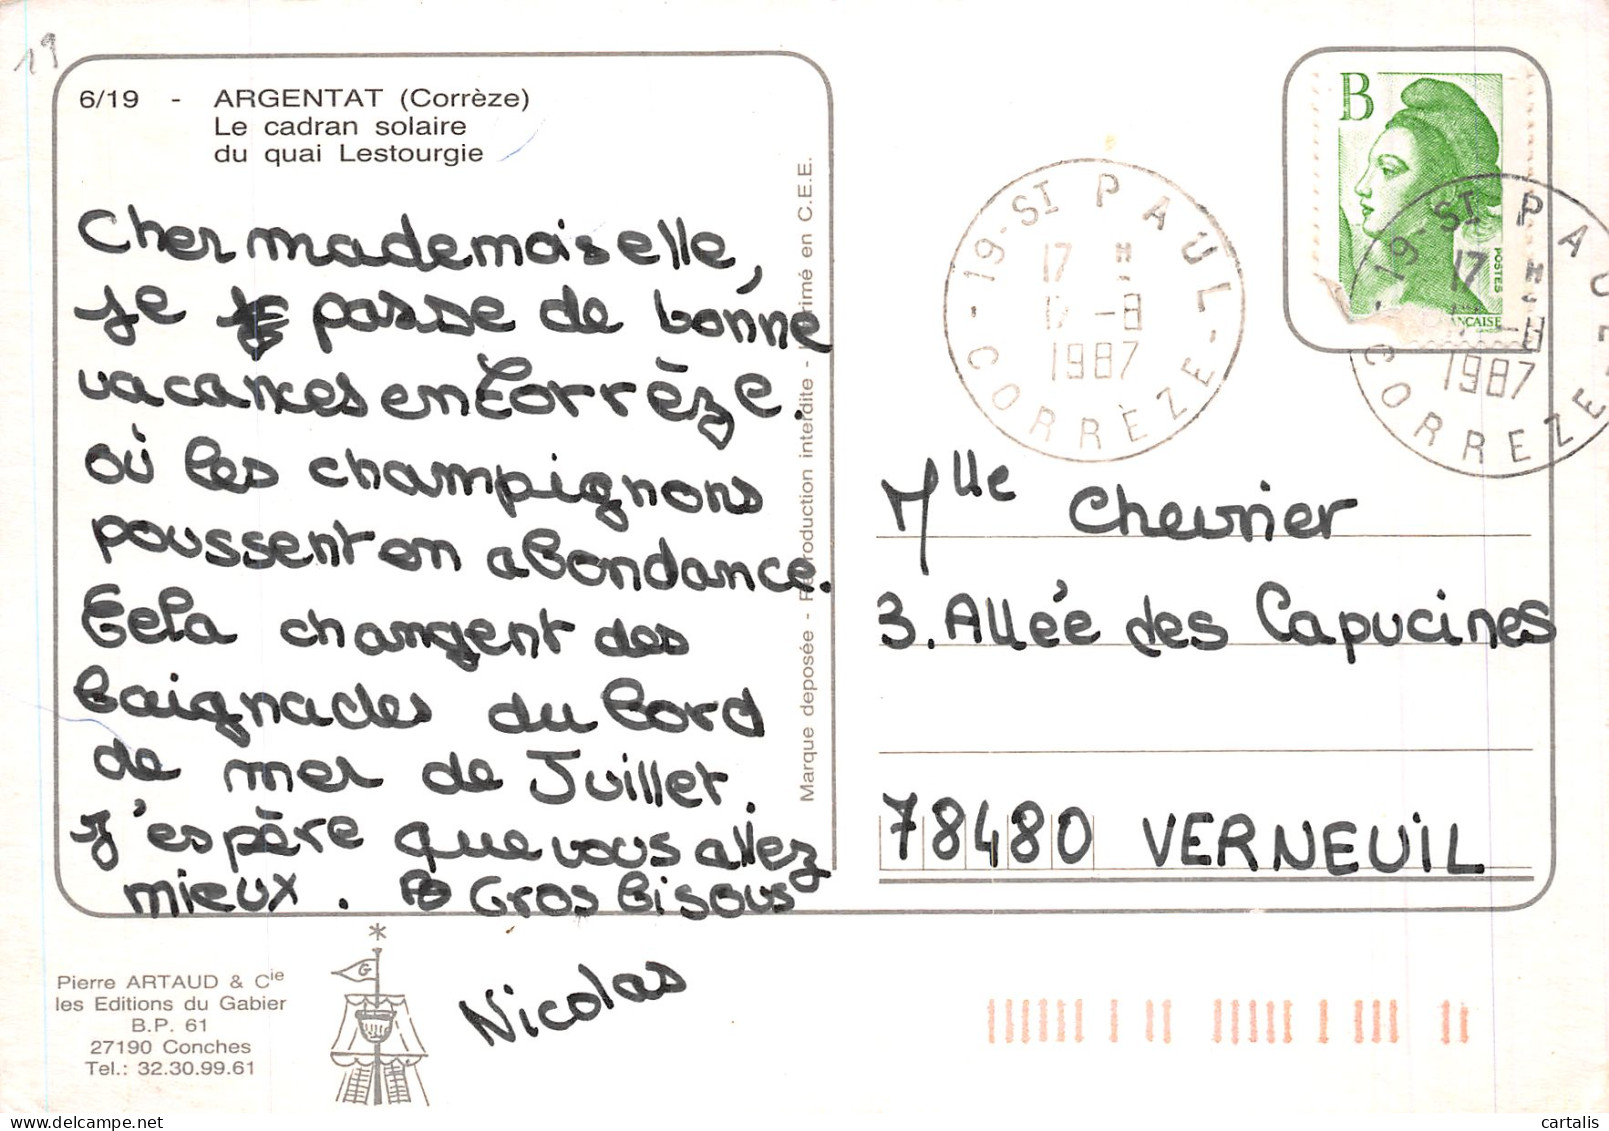 19
6/19 - ARGENTAT (Corrèze)
Le cadran solaire
du quai Lestourgie
Cher mademoiselle,
je passe de bonne
vacances en Corrèze.
où les champignons
poussent en abondance.
Cela changent des
baignades du bord
de mer de Juillet.
J'espère que vous allez
mieux. Gros bisous
Nicolas
Marque deposée - Reproduction interdite - Imprimé en C.E.E.
Pierre ARTAUD & Cie
les Editions du Gabier
B.P. 61
27190 Conches
Tel.: 32.30.99.61
G
19 - ST PAUL - CORRÈZE
17 H
-8
1987
B
POSTES
19 - ST PAUL - CORREZE
17 H
-8
1987
Mlle Chevrier
3. Allée des Capucines
78480 VERNEUIL
cartalis